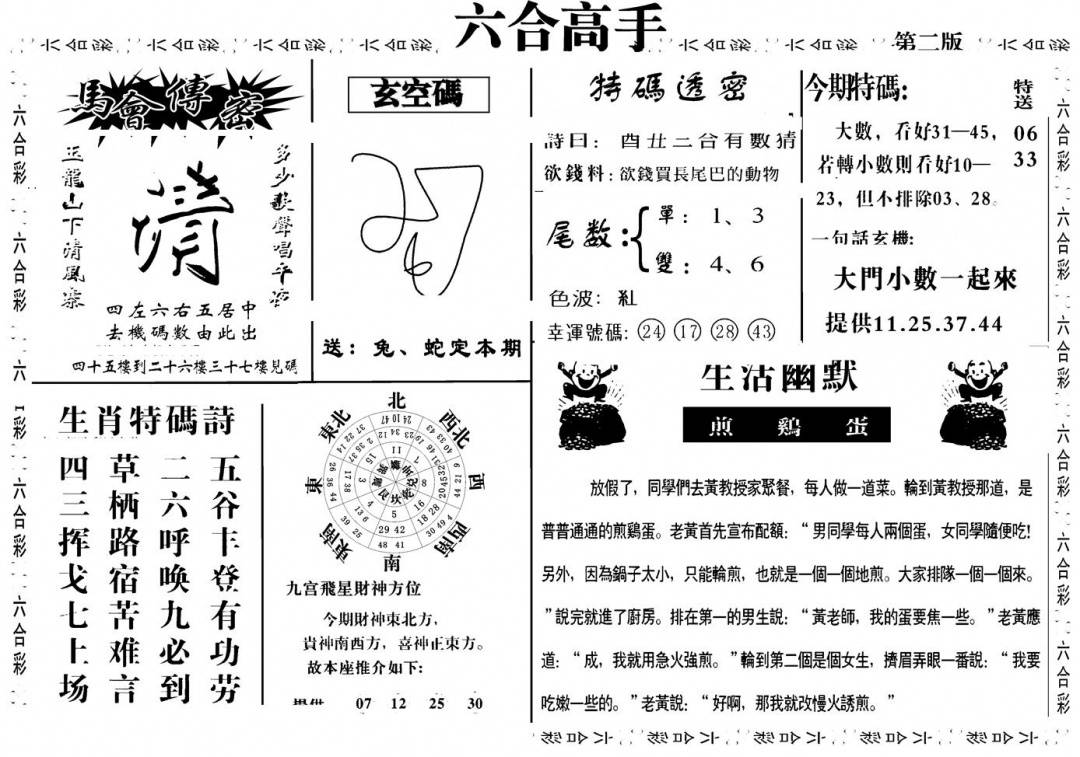 六合高手
第二版
馬會傳密
玉龍山下清風來
多少歌聲唱平安
四左六右五居中
去機碼数由此出
四十五樓到二十六樓三十七樓見碼
玄空碼
送：兔、蛇定本期
特碼透密
詩曰：酉丑二合有數猜
欲錢料：欲錢買長尾巴的動物
尾数：
單：1、3
雙：4、6
色波：紅
幸運號碼：24 17 28 43
今期特碼:
特送
06
33
大數，看好31—45，
若轉小數則看好10—
23，但不排除03、28。
一句話玄機:
大門小數一起來
提供11.25.37.44
生肖特碼詩
五谷丰登有功劳
二六呼唤九必到
草栖路宿苦难言
四三挥戈七上场
北
東北
西北
東
西
東南
西南
南
九宫飛星財神方位
今期財神東北方，
貴神南西方，喜神正東方。
故本座推介如下：
提供 07 12 25 30
生活幽默
煎 鷄 蛋
放假了，同學們去黃教授家聚餐，每人做一道菜。輪到黃教授那道，是
普普通通的煎鷄蛋。老黃首先宣布配額：“男同學每人兩個蛋，女同學隨便吃!
另外，因為鍋子太小，只能輪煎，也就是一個一個地煎。大家排隊一個一個來。
”說完就進了廚房。排在第一的男生說：“黃老師，我的蛋要焦一些。”老黃應
道：“成，我就用急火強煎。”輪到第二個是個女生，擠眉弄眼一番說：“我要
吃嫩一些的。”老黃說：“好啊，那我就改慢火誘煎。”